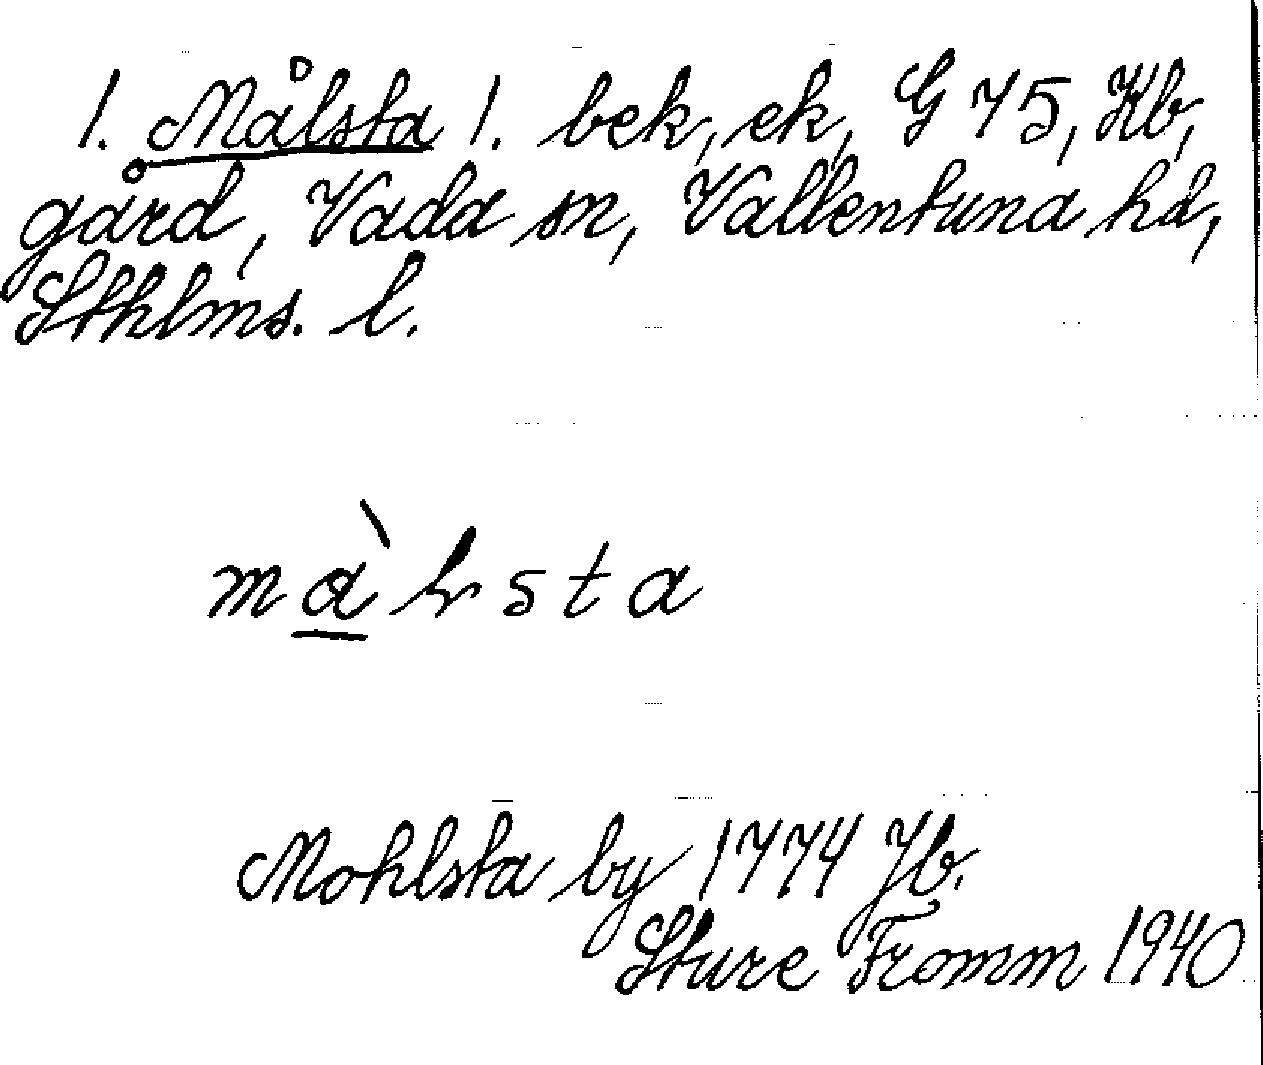 1. Målsta 1. bek, ek, G 75, Kb,
gård, Vada sn, Vallentuna hd,
Sthlms. l.
mὰ̱ƚsta
Mohlsta by 1774 Jb.
Sture Fromm 1940